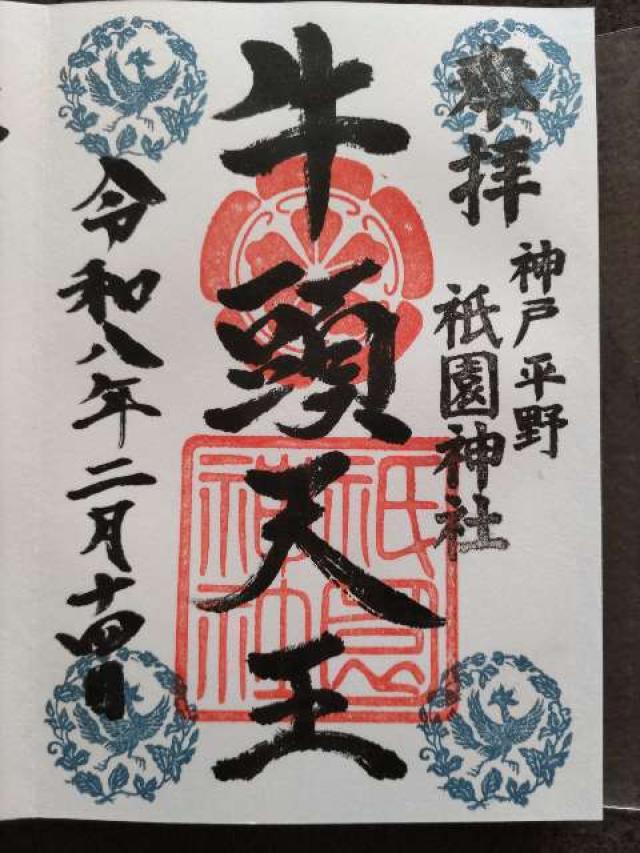 奉拝
神戸平野
祇園神社
牛頭天王
祇園
神社
令和八年二月十四日